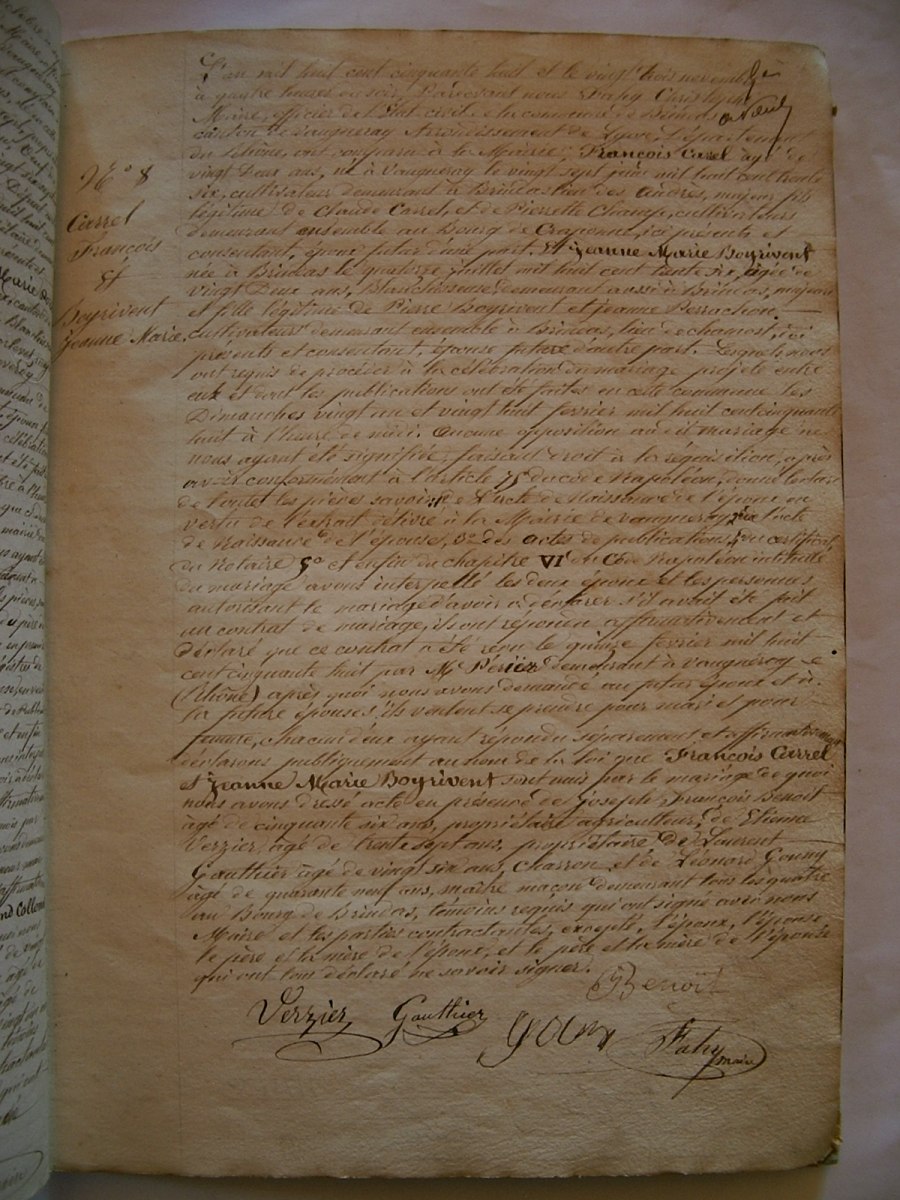 N.° 8
Carrel
François
et
Boyrivent
Jeanne Marie
L'an mil huit cent cinquante huit et le vingt trois novembre
à quatre heures du soir, Pardevant nous Fahy Christophe
Maire, officier de l'Etat civil de la commune de Brindas
canton de Vaugneray Arrondissement de Lyon, Département
du Rhône, ont comparu à la Mairie, François Carrel agé de
vingt Deux ans, né à Vaugneray le vingt sept juin mil huit cent trente
six, cultivateur demeurant à Brindas lieu des Andrés, majeur fils
légitime de Claude Carrel, et de Pierrette Champ, cultivateurs
demeurant ensemble au Bourg de Craponne, ici présents et
consentant, époux futur d'une part. Et Jeanne Marie Boyrivent
née à Brindas le quatorze juillet mil huit cent trente six, agée de
vingt Deux ans, Blanchisseuse, demeurant aussi à Brindas, majeure
et fille légitime de Pierre Boyrivent et jeanne Perrachon,
cultivateurs demeurant ensemble à Brindas, lieu de chamost, ici
présents et consentant, épouse future d'autre part. Lesquels nous
ont requis de procéder à la célébration du mariage projeté entre
eux et dont les publications ont été faites en cette commune les
Dimanches vingt un et vingt huit fevrier mil huit cent cinquante
huit à l'heure de midi. aucune opposition au dit mariage ne
nous ayant été signifiée, faisant droit à la réquisition, après
avoir conformément à l'article 75 du code Napoléon, donné lecture
de toutes les pièces savoir: 1° de l'acte de Naissance de l'époux en
vertu de l'extrait délivré à la Mairie de vaugneray, 2° de l'acte
de Naissance de l'épouse, 3° des actes de publications, 4° du certificat
du Notaire 5° et enfin du chapitre VI du Code Napoléon intitulé
du mariage avons interpellé les deux époux et les personnes
autorisant le mariage d'avoir à déclarer s'il avait été fait
un contrat de mariage, ils ont répondu affirmativement et
déclaré que ce contrat a été reçu le quinze fevrier mil huit
cent cinquante huit par M.e Périez demeurant à Vaugneray
(Rhône) après quoi nous avons demandé au futur époux et à
la future épouse s'ils veulent se prendre pour mari et pour
femme, chacun d'eux ayant répondu séparement et affirmativement
déclarons publiquement au nom de la loi que François Carrel
et Jeanne Marie Boyrivent sont unis par le mariage de quoi
nous avons dressé acte en présence de Joseph François Benoit
âgé de cinquante six ans, propriétaire agriculteur, de Etienne
Verzier, âgé de trente sept ans, propriétaire De Laurent
Gauthier âgé de vingt six ans, Charron et de Léonard Gouny
âgé de quarante neuf ans, maître maçon demeurant tous les quatre
au Bourg de Brindas, témoins requis qui ont signé avec nous
Maire et les parties contractantes, excepté, l'époux, l'épouse,
le père et la mère de l'époux, et le père et la mère de l'épouse
qui ont tous déclaré ne savoir signer.
Benoit
Verzier Gauthier
Fahy maire